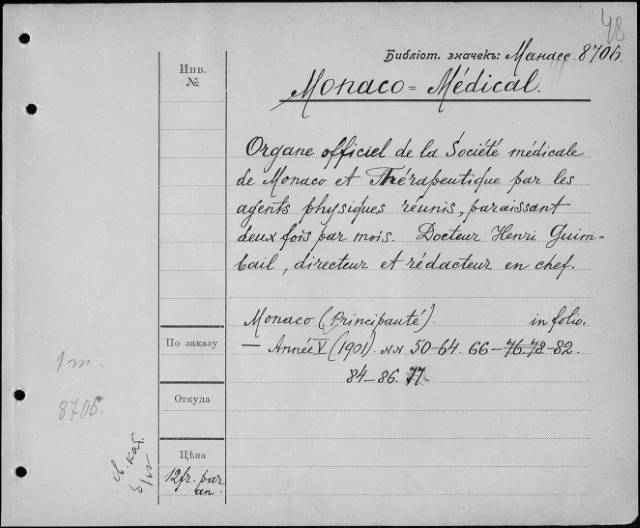 48
Библіот. значекъ: Манасс. 8706.
Инв.
№
Monaco=Médical.
Organe officiel de la Société médicale
de Monaco et Thérapeutique par les
agents physiques réunis, paraissant
deux fois par mois. Docteur Henri Guim-
bail, directeur et rédacteur en chef.
Monaco (Principauté). in folio.
— Année V (1901). №№ 50-64. 66-76. 78-82.
84-86. 77.
По заказу
1 т.
8706.
Откуда
св. кат.
Цѣна
12 fr. par
an.